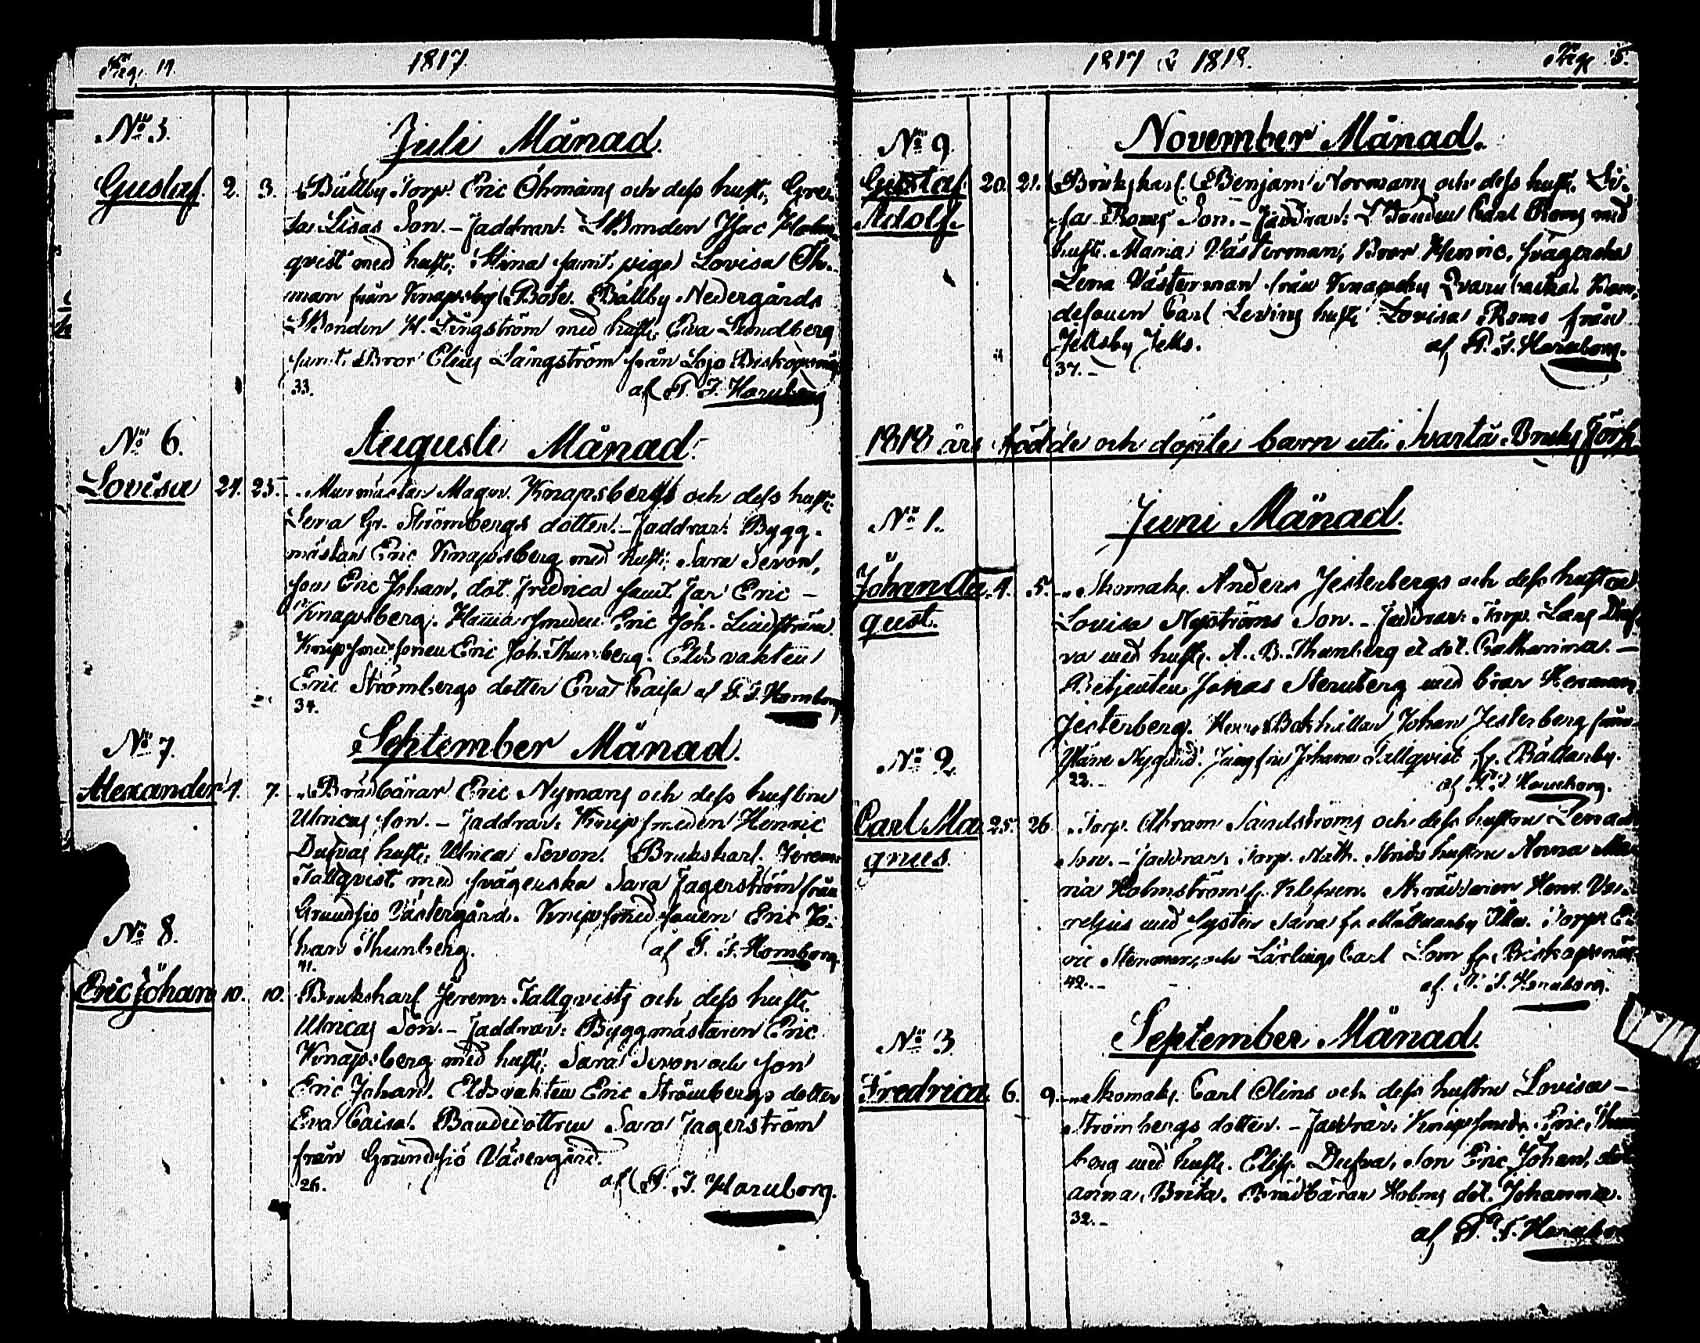 1817.
No 5.
Juli Månad.
Gustaf 2. 3. Bållby Torp. Eric Öhmans och dess hust. Gre-
ta Lisas Son. – Faddrar: Bonden Isac Holm-
qvist med hust. Stina samt pig. Lovisa Öh-
man från Knapsby Böle. Bållby Nedergårds
Bonden H. Långström med hust. Eva Sundberg
samt Bror Elias Långström från Lojo Biskopsnäs
33. af P. J. Hornborg
No 6.
Augusti Månad.
Lovisa 24. 25. Murmästar Magn. Knapsbergs och dess hust.
Lena Gr. Strömbergs dotter. – Faddrar: Bygg-
mästar Eric Knapsberg med hust. Sara Sevon,
son Eric Johan, dot. Fredrica samt Far Eric –
Knapsberg. Hammarsmeden Eric Joh. Lindström
Knipsmedsonen Eric Joh. Thunberg. Eldvakten
Eric Strömbergs dotter Eva Caisa af P. J. Hornborg
34.
No 7.
September Månad.
Alexander 4. 7. Brådbärar Eric Nymans och dess hustru
Ulricas son. – Faddrar: Knipsmeden Henric
Dufvas hust. Ulrica Sevon. Brukskarl. Jerem.
Tallqvist med svägerska Sara Jagerström från
Grundsjö Västergård. Knipsmedsonen Eric Jo-
han Thunberg. af P. J. Hornborg
41.
No 8.
Eric Johan 10. 10. Brukskarl Jerem. Tallqvists och dess hust.
Ulricas Son. – Faddrar: Byggmästaren Eric
Knapsberg med hust. Sara Sevon och son
Eric Johan. Eldvakten Eric Strömbergs dotter
Eva Caisa. Bondedottren Sara Jagerström
från Grundsjö Västergård.
26. af P. J. Hornborg.
1817 & 1818.
Pag. 5.
No 9.
November Månad.
Gustaf 20. 21. Brukskarl. Benjam Normans och dess hust. Li-
Adolf. sa Roms Son. – Faddrar: Bonden Carl Roms med
hust. Maria Västerman, Bror Henric, svägerska
Lena Västerman från Knapsby Qvarnbacka.
Carl Levins hust. Lovisa Roms från
Jellsby af P. J. Hornborg.
37. –
1818 års födde och döpte barn uti Svartå Bruks Förs.
No 1.
Juni Månad.
Johan Au- 4. 5. Skomak. Anders Jesterbergs och dess hustru
gust. Lovisa Nyströms Son. – Faddrar: Torp. Lars Duf-
va med hust. A. B. Thunberg et dot. Catharina. –
Betjenten Jonas Sternberg med bror Herman
Jesterberg. Herr Bokhållar Johan Jesterberg
Jungfru Johanna Tallqvist fr. Bållanby.
22. – af P. J. Hornborg.
No 2
Carl Ma- 25. 26. Torp. Abram Sandströms och dess hustru Lenas
gnus. Son. – Faddrar: Torp. Math. Strids hustru Anna Ma-
ria Holmström
relius med syster Sara Torp. E-
ric Stenman, och Lärlings Carl Lom fr. Biskopsnäs
42. – af P. J. Hornborg.
No 3
September Månad.
Fredrica 6. 9. Skomak. Carl Olins och dess hustru Lovisa –
Strömbergs dotter. – Faddrar: Knipsmed. Eric Thun-
berg med hust. Elis. Dufva, Son Eric Johan,
anna Brita. Brådbärar Holms dot. Johanna.
32. –
af P. J. Hornborg